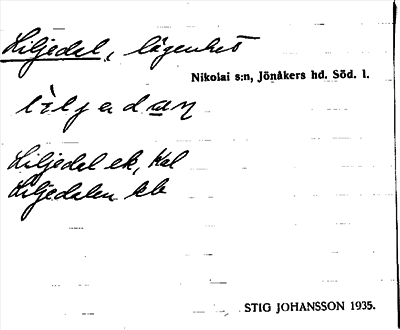 Liljedal, lägenhet
Nikolai s:n, Jönåkers hd. Söd. l.
Liljedal ek, Kal
Liljedalen
STIG JOHANSSON 1935.